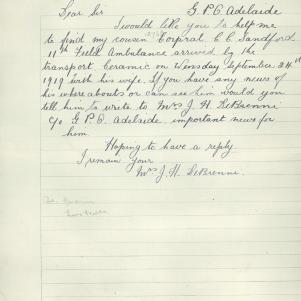 Dear Sir G.P.O. Adelaide
I would like you to help me
to find my cousin Corpral C C Sandford
11th Field Ambulance arrived by the
transport Ceramic on Winsday September 24th
1919 with his wife. If you have any news of
his where abouts or can see him would you
tell him to write to Mrs J. H. DeBrenni
c/o G.P.O. Adelaide important news for
him.
Hoping to have a reply
I remain your
Mrs J. H. DeBrenni